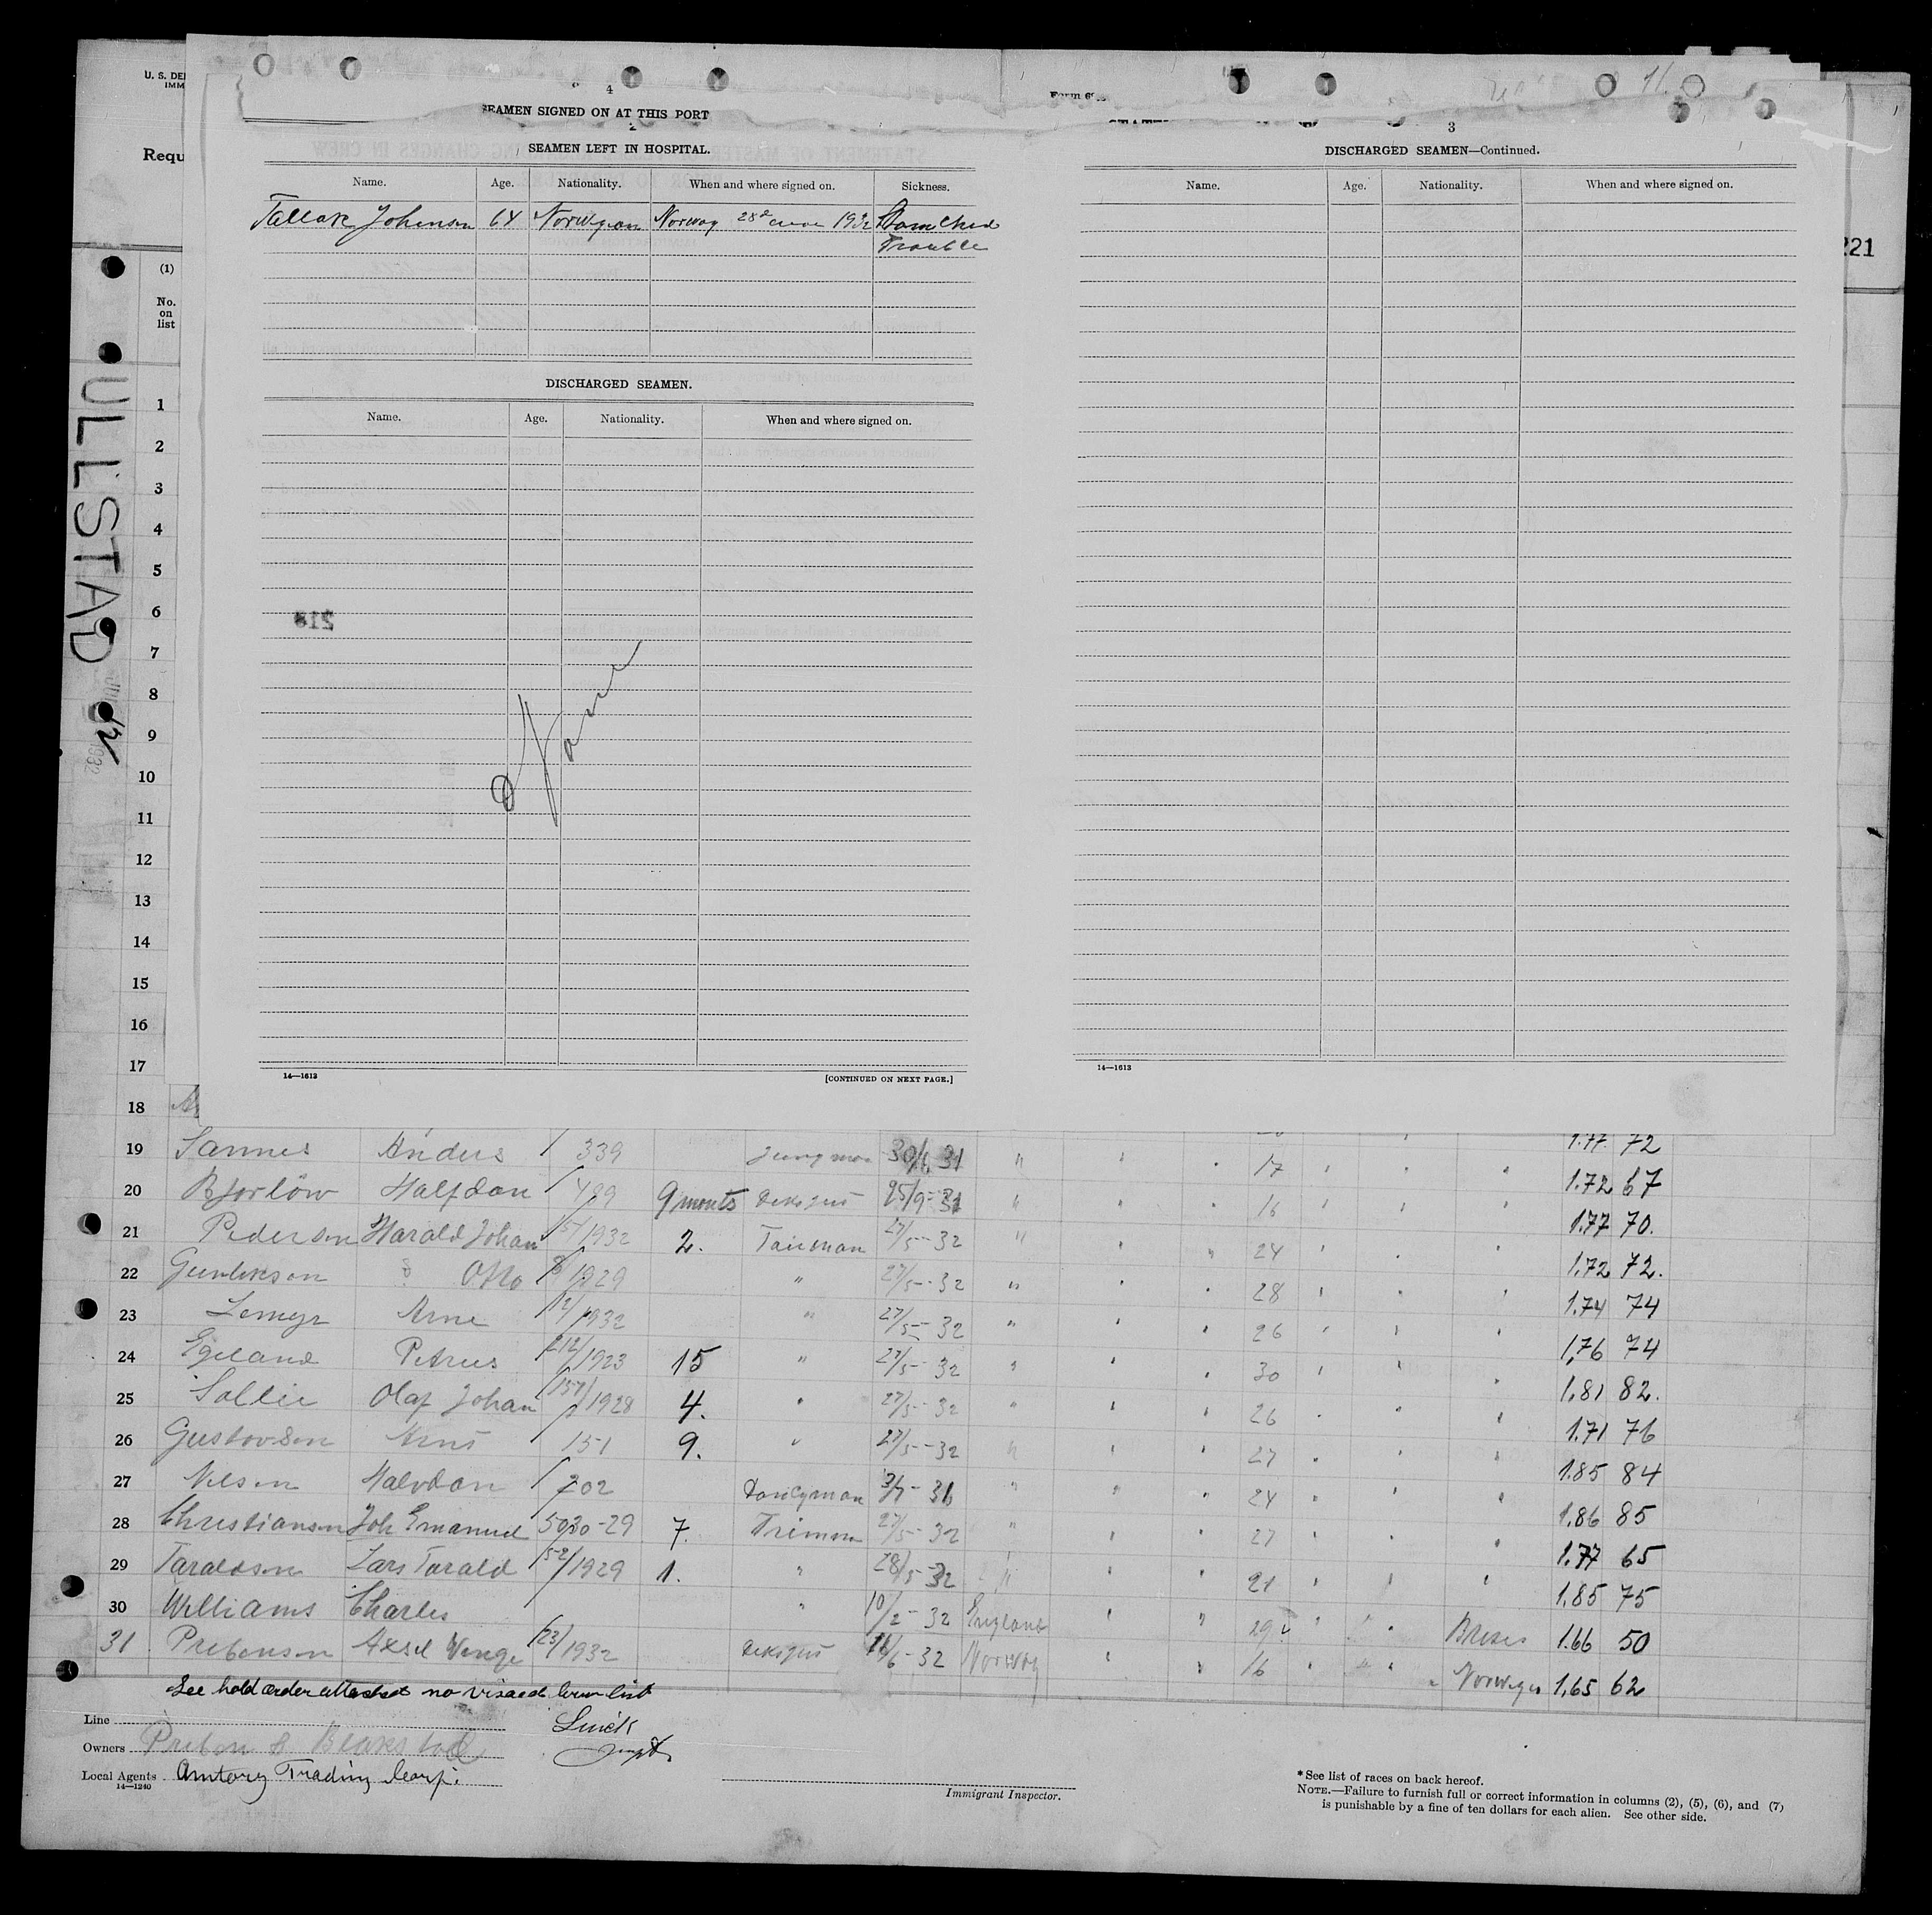 U. S. DE
IMM
Requ
(1)
No.
on
list
ULLSTAD
1932
221
4
SEAMEN SIGNED ON AT THIS PORT
2
SEAMEN LEFT IN HOSPITAL.
Name. Age. Nationality. When and where signed on. Sickness.
Tallak Johensen 64 Norwegian Norway 28d 1932
Trouble
DISCHARGED SEAMEN.
Name. Age. Nationality. When and where signed on.
218
None
14—1613 [CONTINUED ON NEXT PAGE.]
3
DISCHARGED SEAMEN—Continued.
Name. Age. Nationality. When and where signed on.
14—1613
1
2
3
4
5
6
7
8
9
10
11
12
13
14
15
16
17
18
1.77 72
19 Sannes Anders 339 Jungman 30/1 31 " 17 1.72 67
20 Bjorlöw Halfdan 499 9 monts 25/9-31 " 16 1.77 70.
21 Pederson Harald Johan 51/1932 2. 27/5-32 " 24 1.72 72.
22 Gunlekson Otto 8/1929 " 27/5-32 " 28 1.74 74
23 Lemyr Arne 12/1932 " 27/5-32 " 26 1,76 74
24 Egeland Petrus 212/1923 15 " 27/5-32 " 30 1,81 82.
25 Sollie Olaf Johan 157/1928 4. " 27/5-32 " 26 1.71 76
26 Gustavson Arne 151 9. " 27/5-32 " 27 1.85 84
27 Nilsen Halvdan 202 Donkyman 3/7-31 " 24 1.86 85
28 Christiansen Joh Emanuel 5030-29 7. Trimmer 27/5-32 " 27 1.77 65
29 Taraldsen Lars Tarald 52/1929 1. " 28/5-32 " 21 1.85 75
30 Williams Charles " 10/2-32 England " 29 1.66 50
31 Prebensen Axsel Wenge 23/1932 11/6-32 Norway 16 " Norwegn 1,65 62
See hold order attached no visaed crew list
Line
Owners
Local Agents Amtorg Trading Corp.
14—1240
Immigrant Inspector.
* See list of races on back hereof.
NOTE.—Failure to furnish full or correct information in columns (2), (5), (6), and (7)
is punishable by a fine of ten dollars for each alien. See other side.